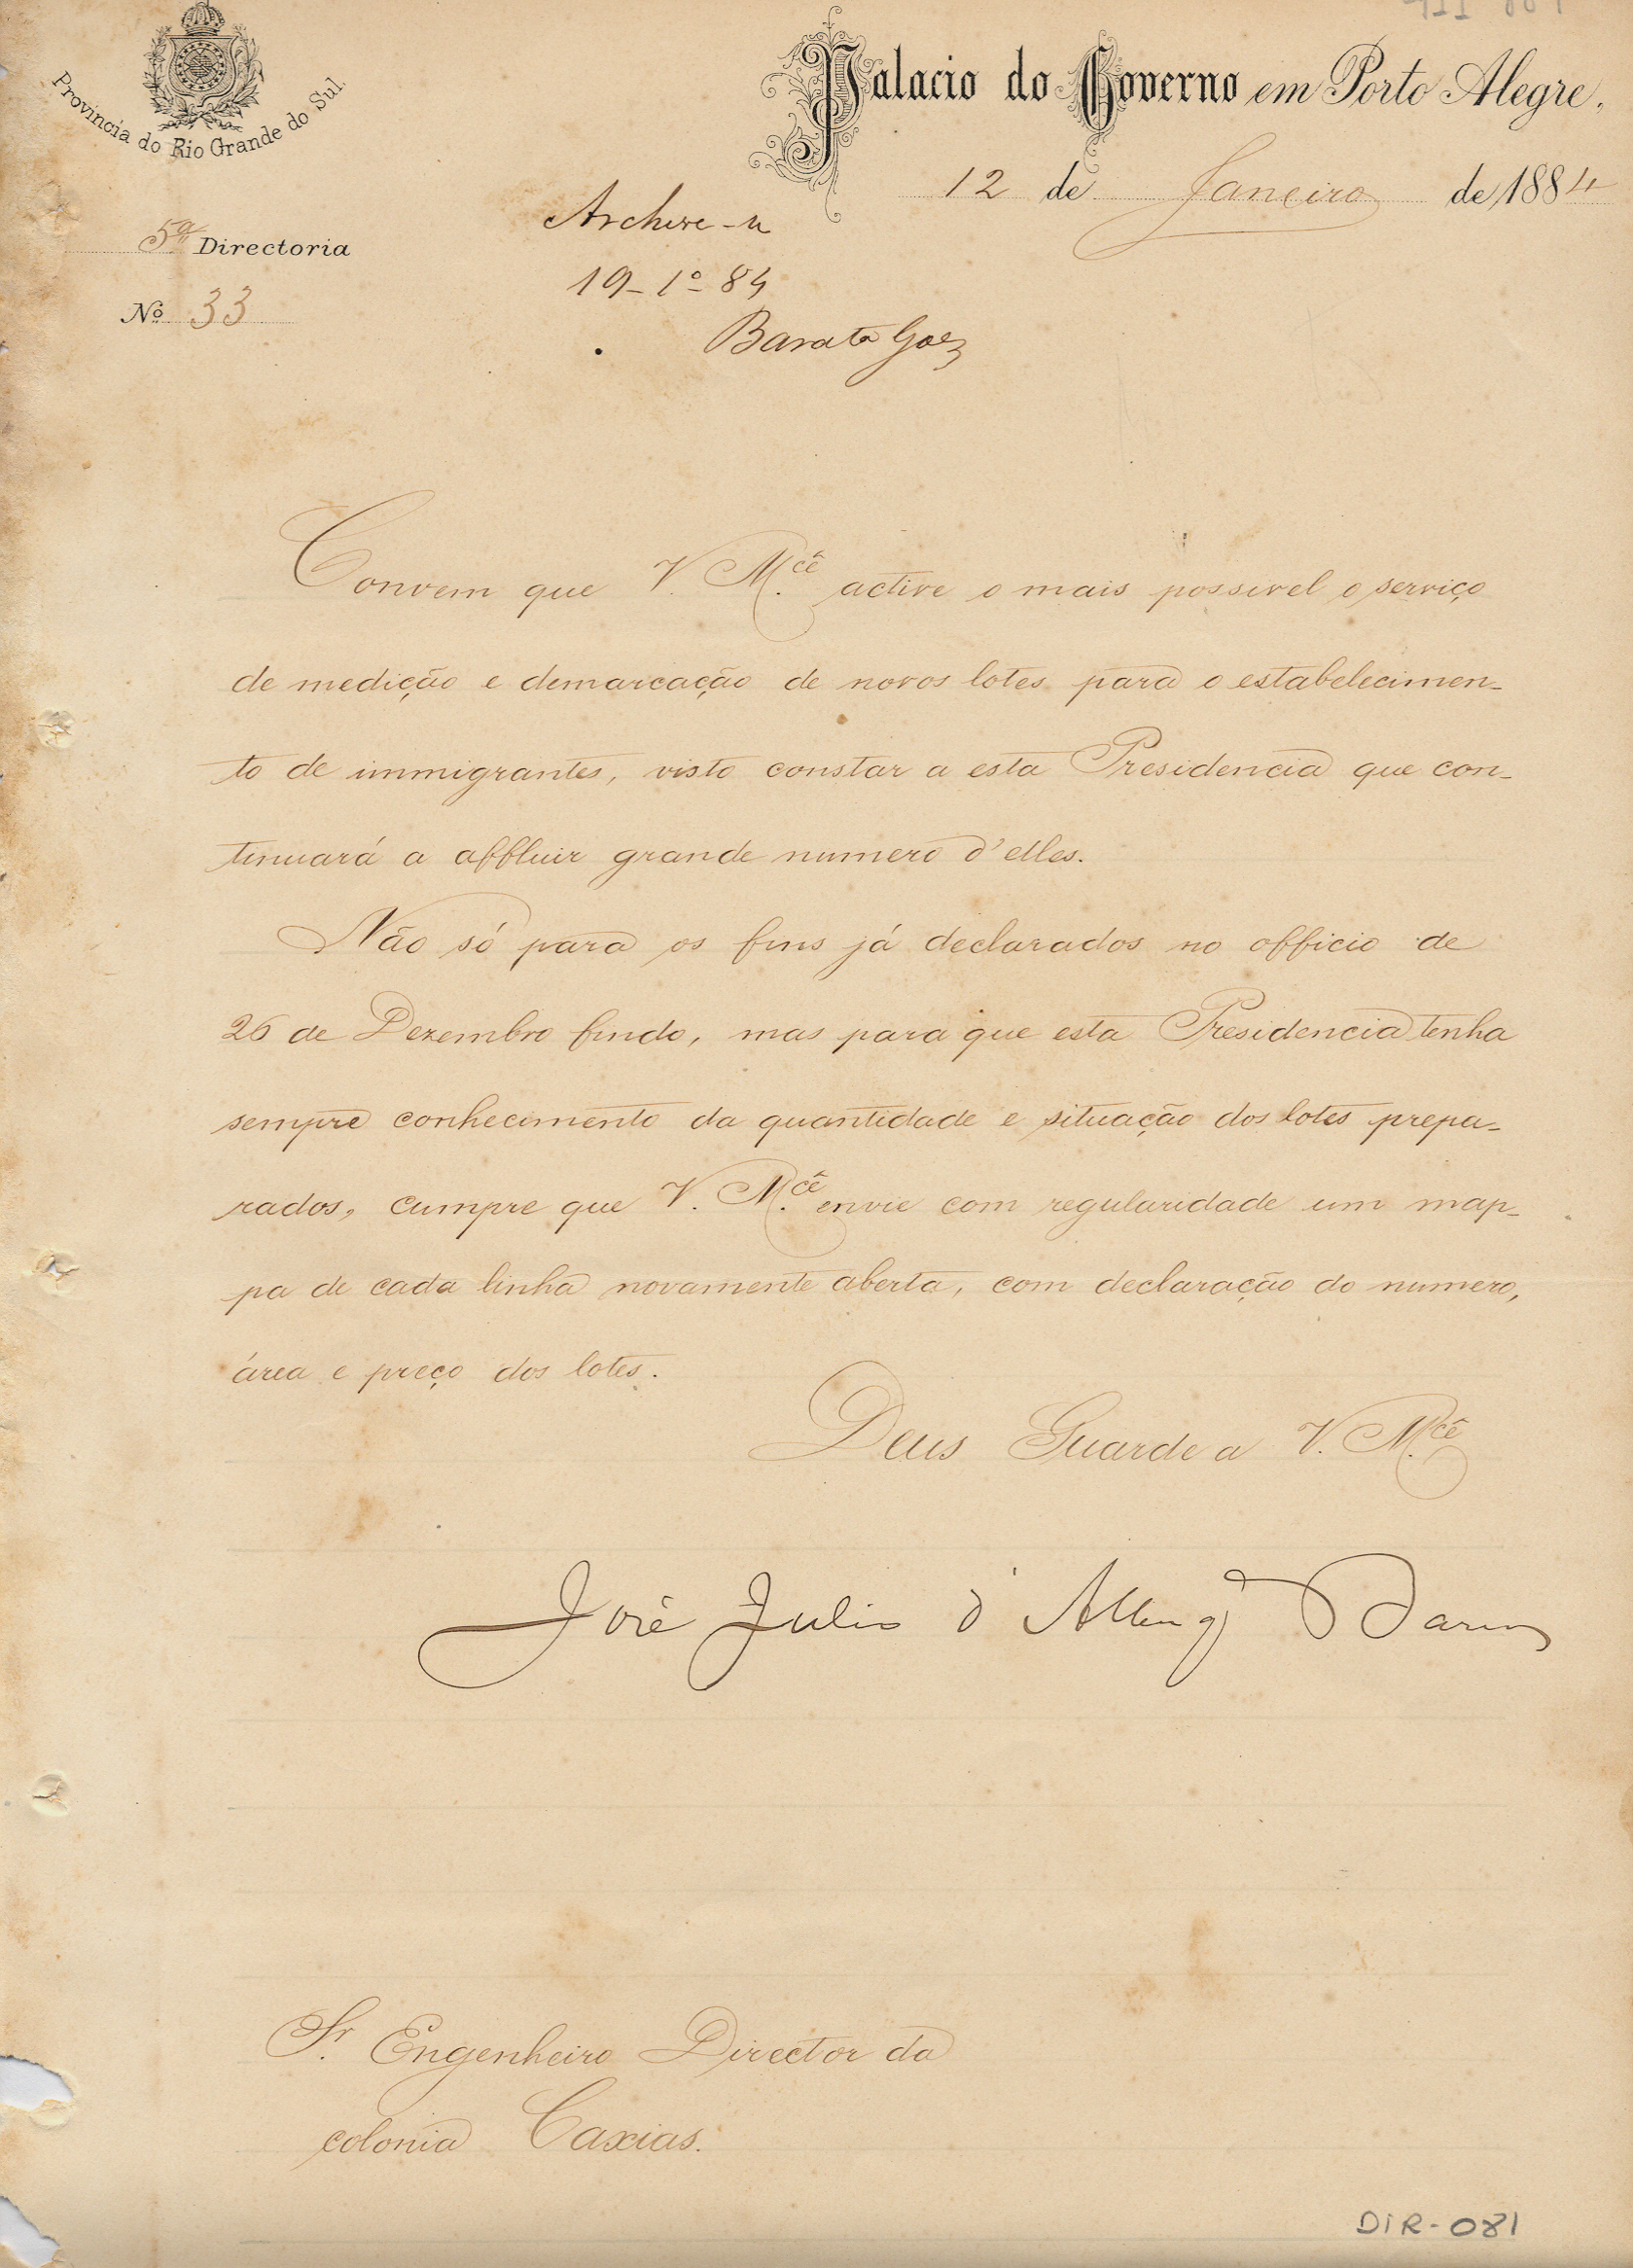 Provincia do Rio Grande do Sul.
Palacio do Governo em Porto Alegre,
12 de Janeiro de 1884
5ª Directoria
Nº 33
Archive-se
19-1º-84
Barata Goes
Convem que V. M.cê active o mais possivel o serviço
de medição e demarcação de novos lotes para o estabelecimen-
to de immigrantes, visto constar a esta Presidencia que con-
tinuará a affluir grande numero d'elles.
Não só para os fins já declarados no officio de
26 de Dezembro findo, mas para que esta Presidencia tenha
sempre conhecimento da quantidade e situação dos lotes prepa-
rados, cumpre que V. M.cê envie com regularidade um map-
pa de cada linha novamente aberta, com declaração do numero,
área e preço dos lotes.
Deus Guarde a V. M.cê
José Julio d'Albuqe Barros
Sr. Engenheiro Director da
colonia Caxias.
DIR-081